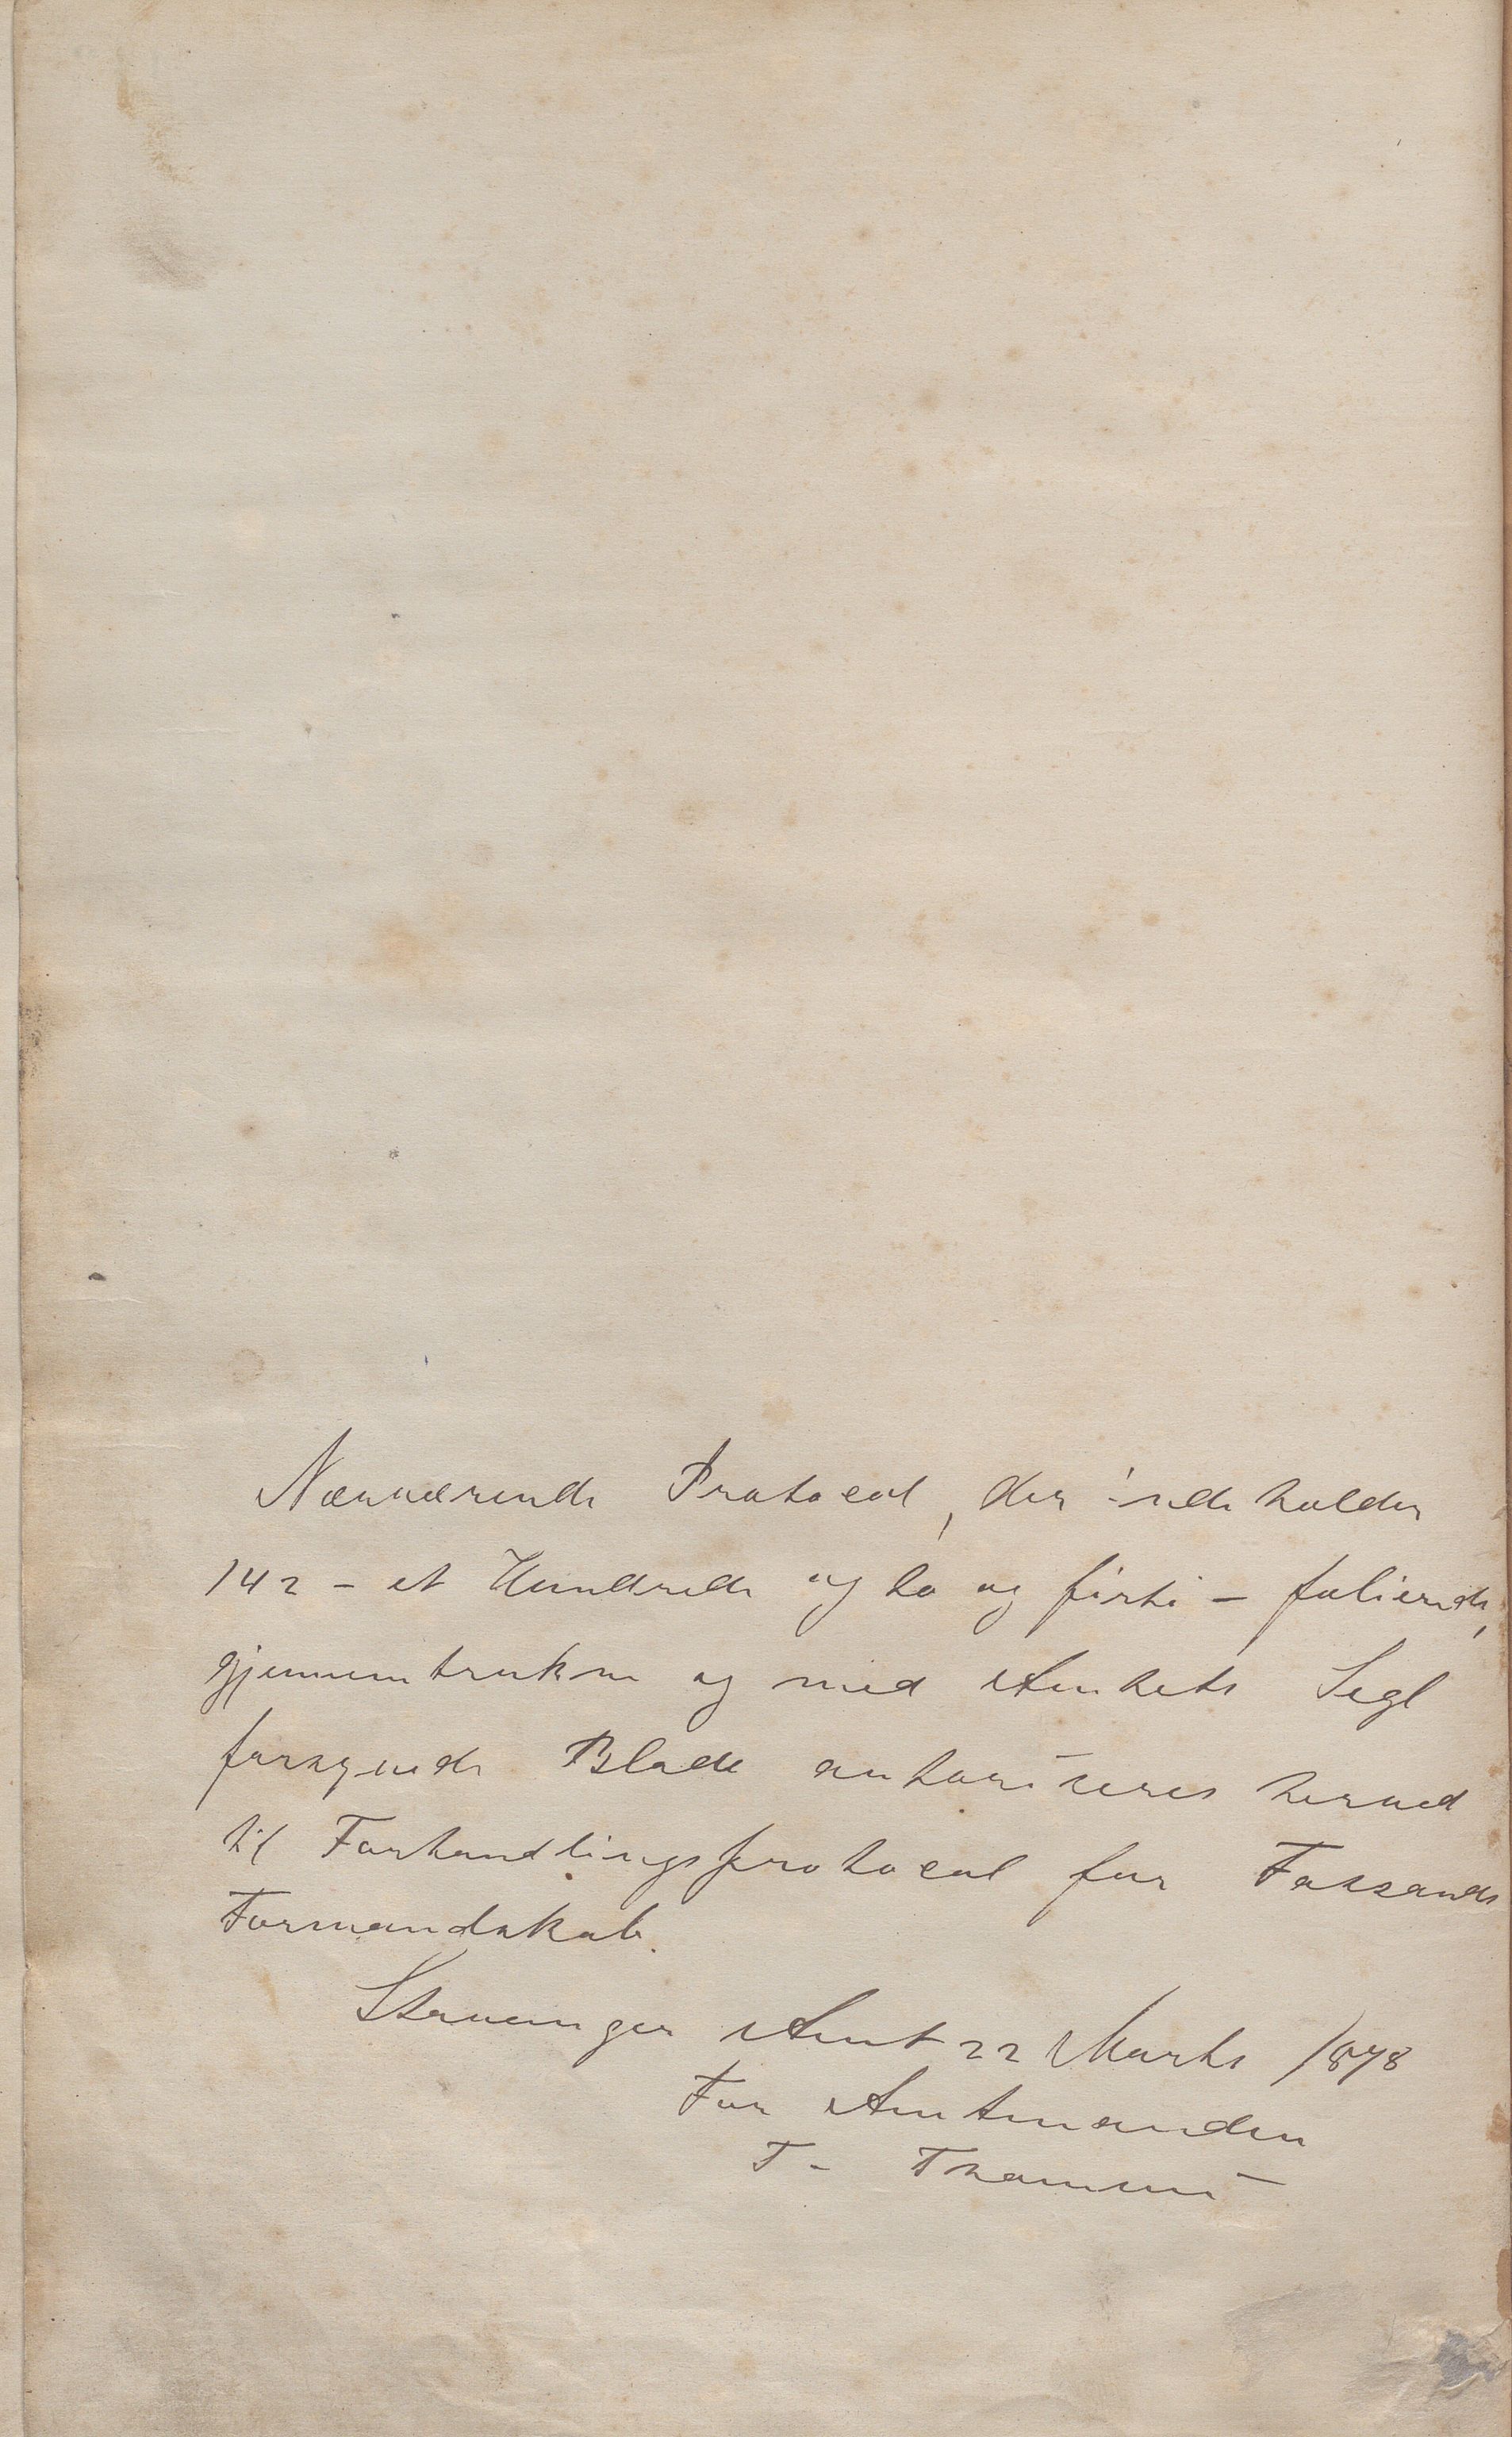 Nærværende Protocol, der indeholder
142 - et Hundrede og to og firti - folierede,
gjennemtrukne og med Amtets Segl
forsynede Blade authoriseres herved
til Forhandlingsprotocol for Fossands
Formandskab.
Stavanger Amt 22 Marts 1878
For Amtmanden
T.